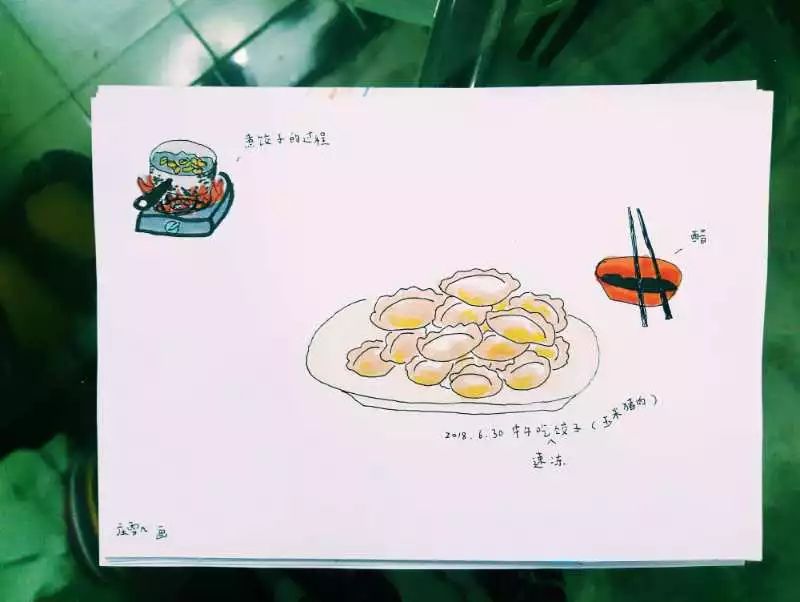 煮饺子的过程
醋
2018.6.30 中午吃饺子(玉米猪肉)
速冻
画